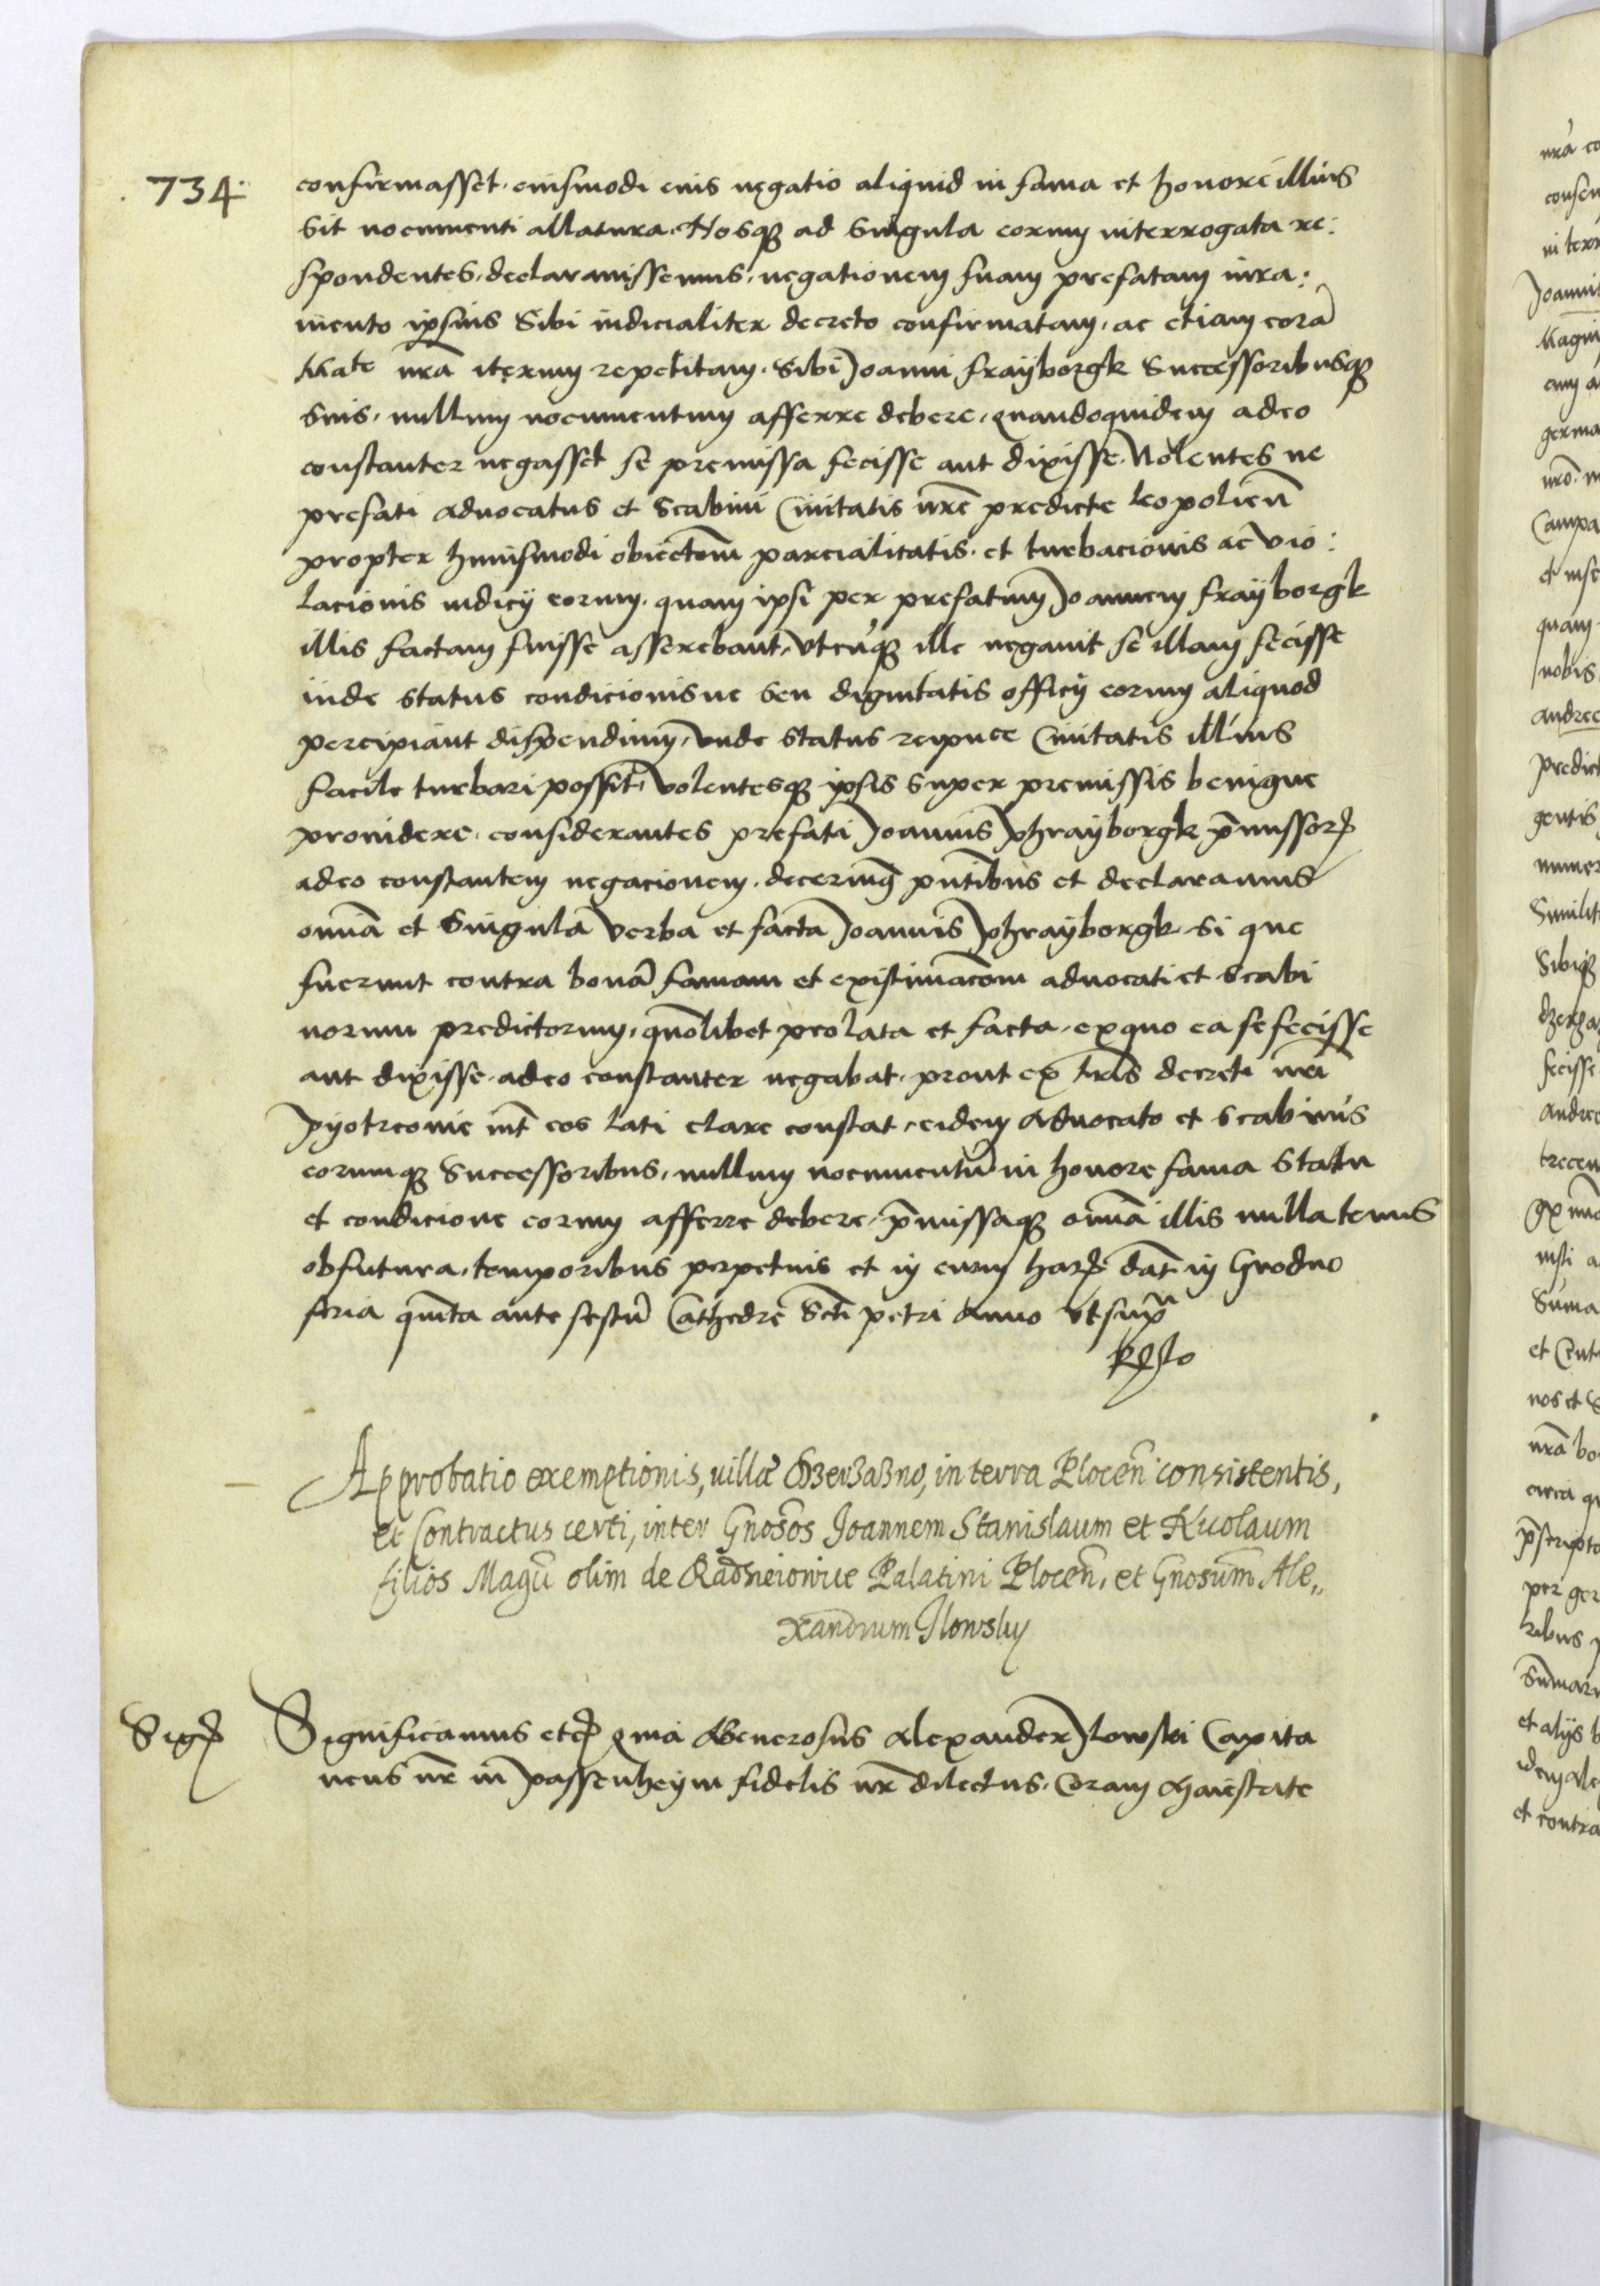 734.
confirmasset. eiusmodi eius negatio aliquid in fama et honore illius
sit nocumenti allatura. Nosq3 ad singula eorum interrogata re:
spondentes, declaravissemus, negationem suam prefatam iura:
mento ipsius sibi iudicialiter decreto confirmatam, ac etiam corā
Mate nrā iterum repetitam. sibi Joanni frayborgk successoribusq3
suis, nullum nocumentum afferre debere, quandoquidem adeo
constanter negasset se premissa fecisse aut dixisse. Nolentes ne
prefati advocatus et scabini Civitatis nrē predicte leopolień
propter huiusmodi obiectōm parcialitatis. et turbacionis ac vio:
lacionis iudicÿ eorum, quam ipsi per prefatum Joannem frayborgk
illis factam fuisse asserebant, utcūq3 ille negavit se illam fecisse
inde status condicionisve seu dignitatis officÿ eorum aliquod
percipiant dispendium, unde status reipuce Civitatis illius
facile turbari possit, volentesq3 ipsis super premissis benigne
providere. considerantes prefati Joannis phrayborgk p̄missor
adeo constantem negacionem. decernim9 pntibus et declaramus
omīa et singula verba et facta Joannis phrayborgk si que
fuerunt contra bonā famam et existimacōm advocati et scabi
norum predictorum, quōlibet prolata et facta. ex quo ea se fecisse
aut dixisse. adeo constanter negabat. prout ex lris decreti nrī
pyotrcovie int eos lati clare constat, eidem advocato et scabinis
eorumq3 successoribus, nullum nocumentū in honore fama statu
et condicione eorum afferre debere, p̄missaq3 omīa illis nullatenus
obfutura, temporibus perpetuis et in evum har dat in Grodno
feria quīta ante festū Cathedre Scti petri anno ut supra
Approbatio exemptionis, villæ Dzerzazno, in terra Plocen̄ consistentis,
et Contractus certi, inter Gnosos Joannem Stanislaum et Nicolaum
filios Magci olim de Radzieiowice Palatini Plocen̄, et Gnosum Ale„
xandrum Ilowsky
Sig Significamus etc quia Generosus Alexander Jlowski Capita
neus nr in passenheym fidelis nr dilectus. Coram Maiestate